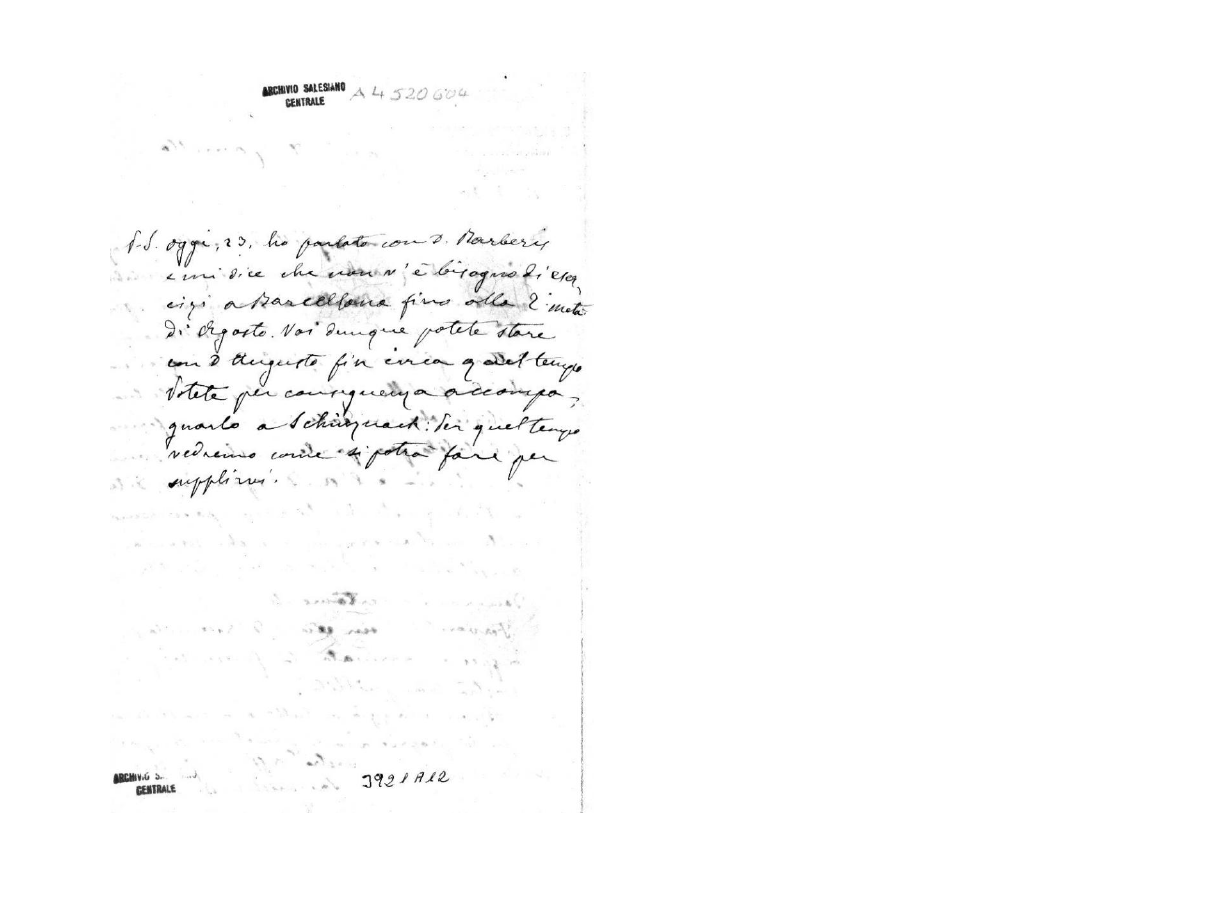 ARCHIVIO SALESIANO
CENTRALE
A 4520604
P.S. Oggi, 23, ho parlato con D. Barberis
e mi dice che non v'è bisogno di eser,
cizi a Barcellona fino alla 2ª metà
di Agosto. Voi dunque potete stare
con D Augusto fin circa quel tempo
Potete per conseguenza accompa,
gnarlo a Schinznach: Per quel tempo
vedremo come si potrà fare per
supplirvi.
ARCHIVIO S
CENTRALE
3921A12